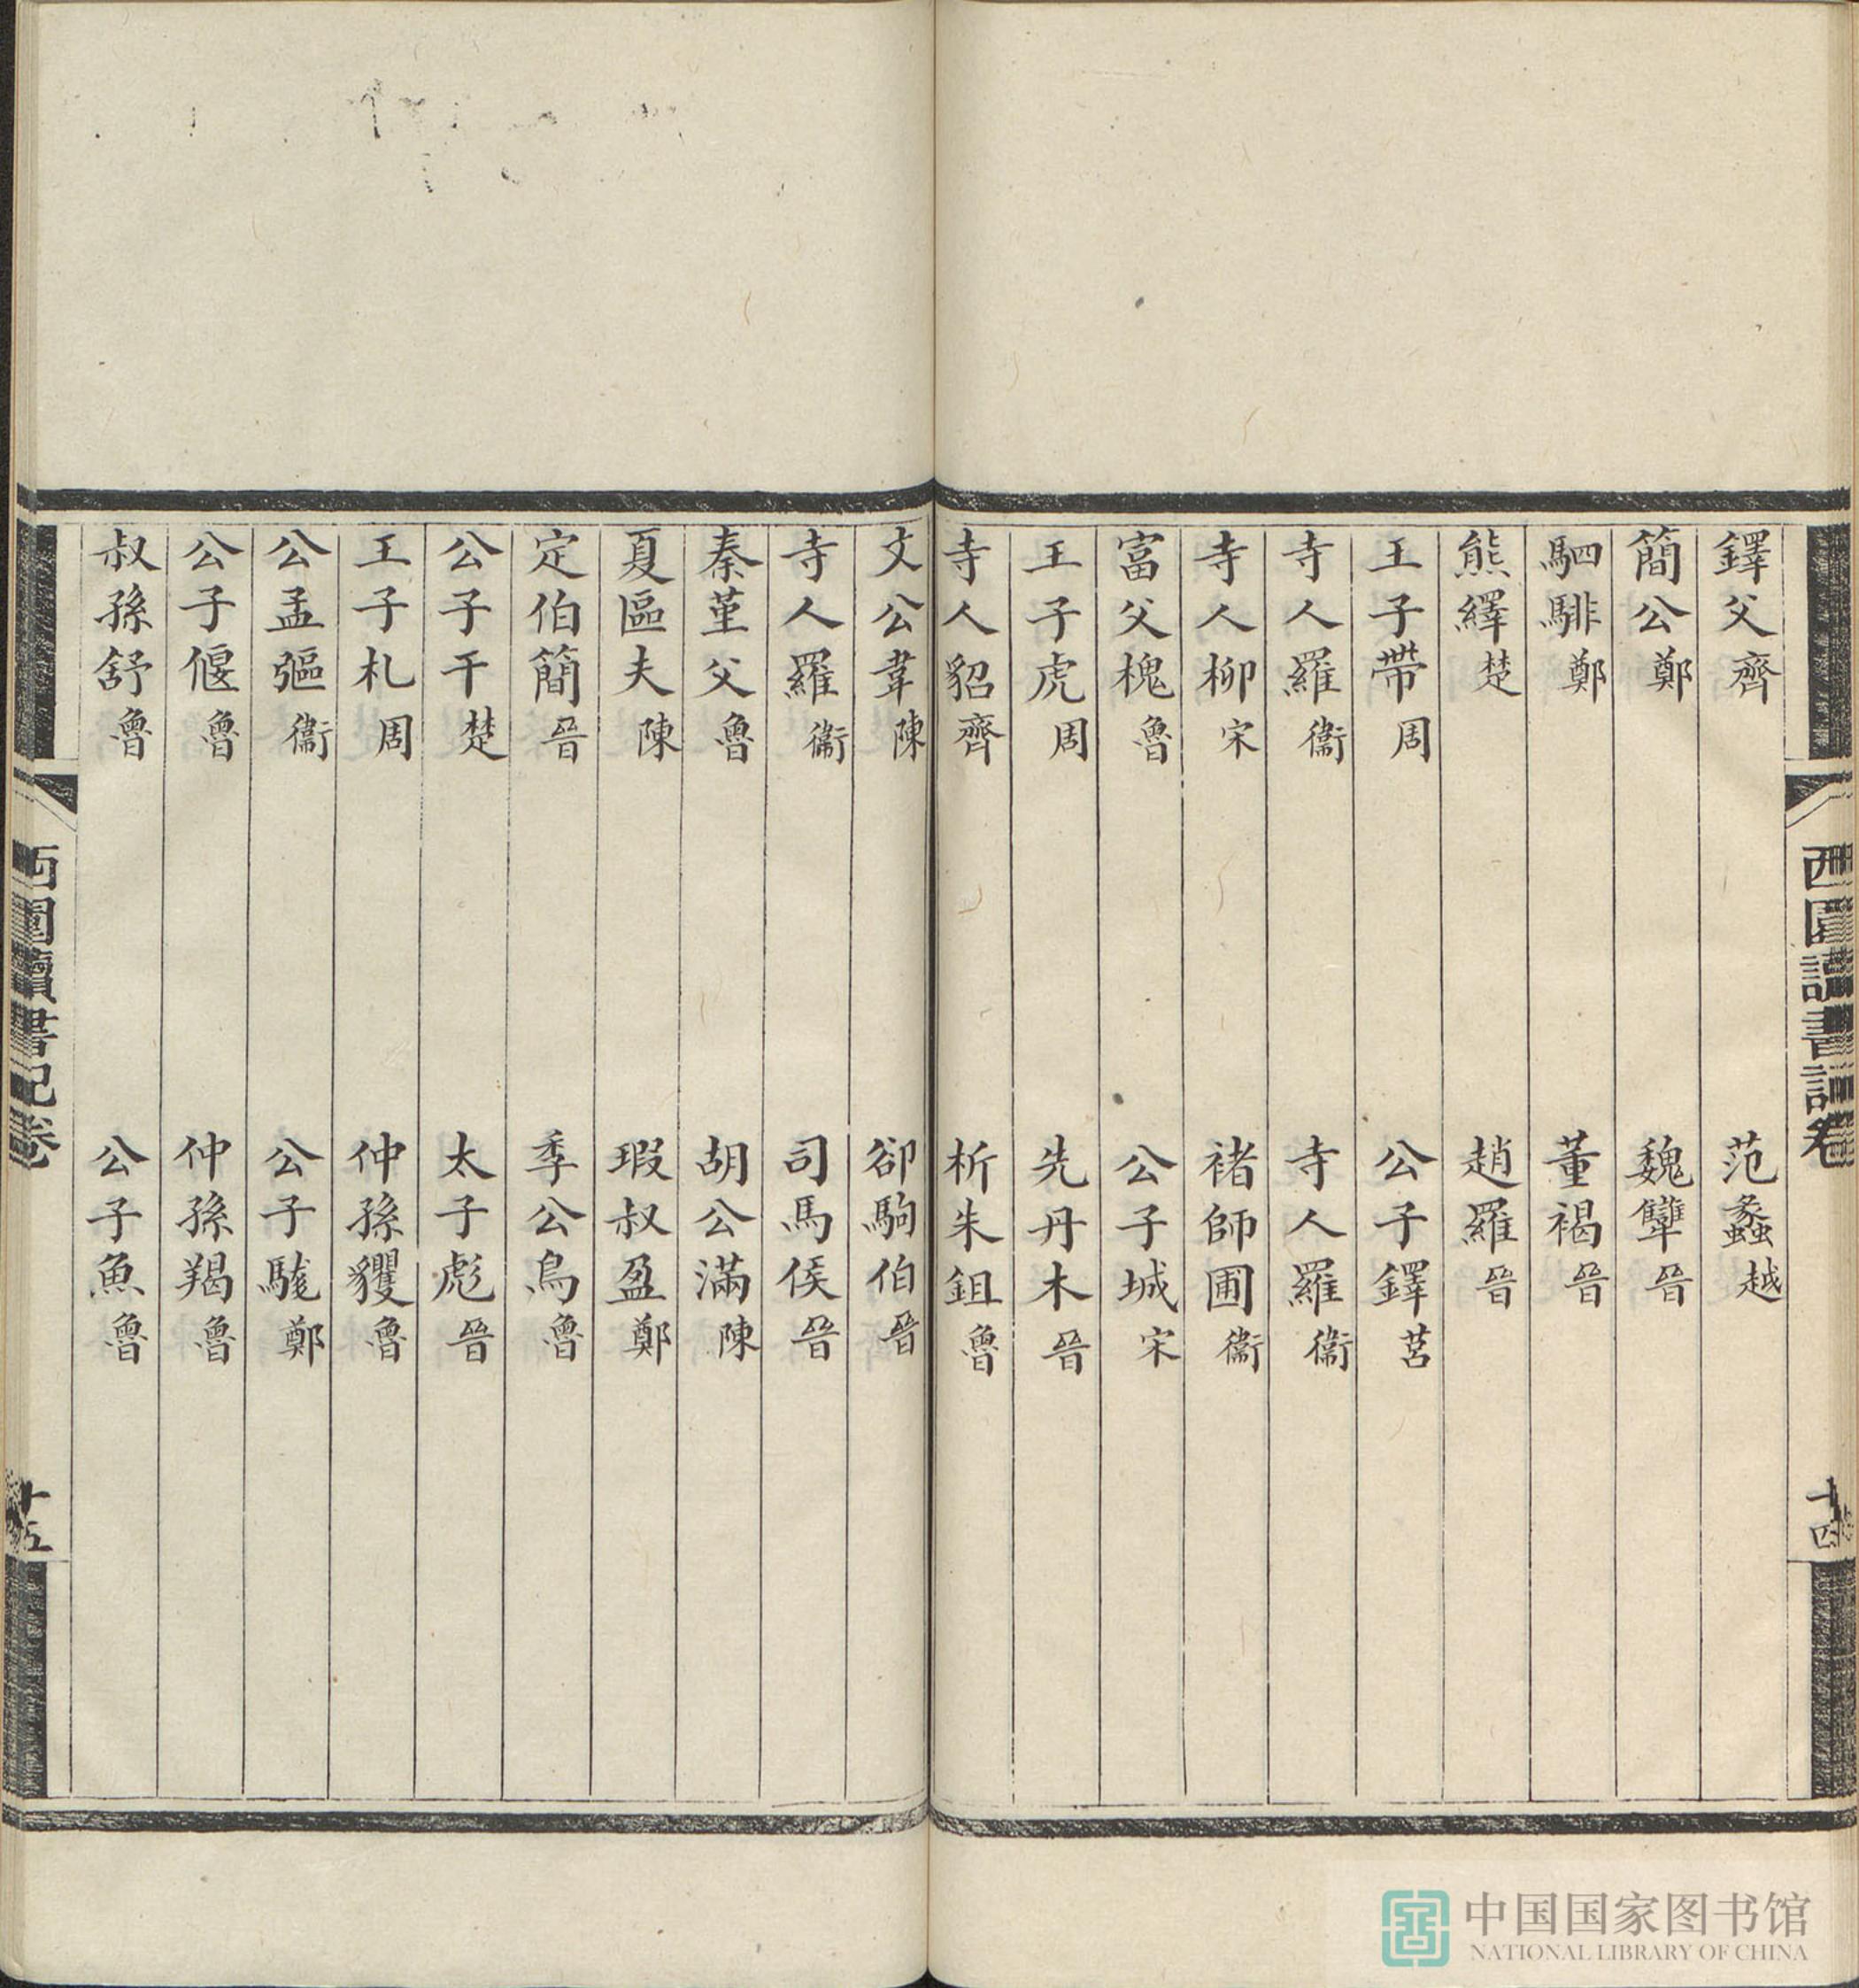 鐸父齊 范蠡越
簡公鄭 魏犫晉
駟騑鄭 董褐晉
熊繹楚 趙羅晉
王子帶周 公子鐸莒
寺人羅衞 寺人羅衞
寺人柳宋 褚師圃衞
富父槐魯 公子城宋
王子虎周 先丹木晉
寺人貂齊 析朱鉏魯
文公韋陳 郤駒伯晉
寺人羅衞 司馬侯晉
秦堇父魯 胡公滿陳
夏區夫陳 瑕叔盈鄭
定伯簡晉 季公鳥魯
公子干楚 太子彪晉
王子札周 仲孫貜魯
公孟彄衞 公子騑鄭
公子偃魯 仲孫羯魯
叔孫舒魯 公子魚魯
西圃讀書記卷
十四
西圃讀書記卷
十五
中国国家图书馆
NATIONAL LIBRARY OF CHINA